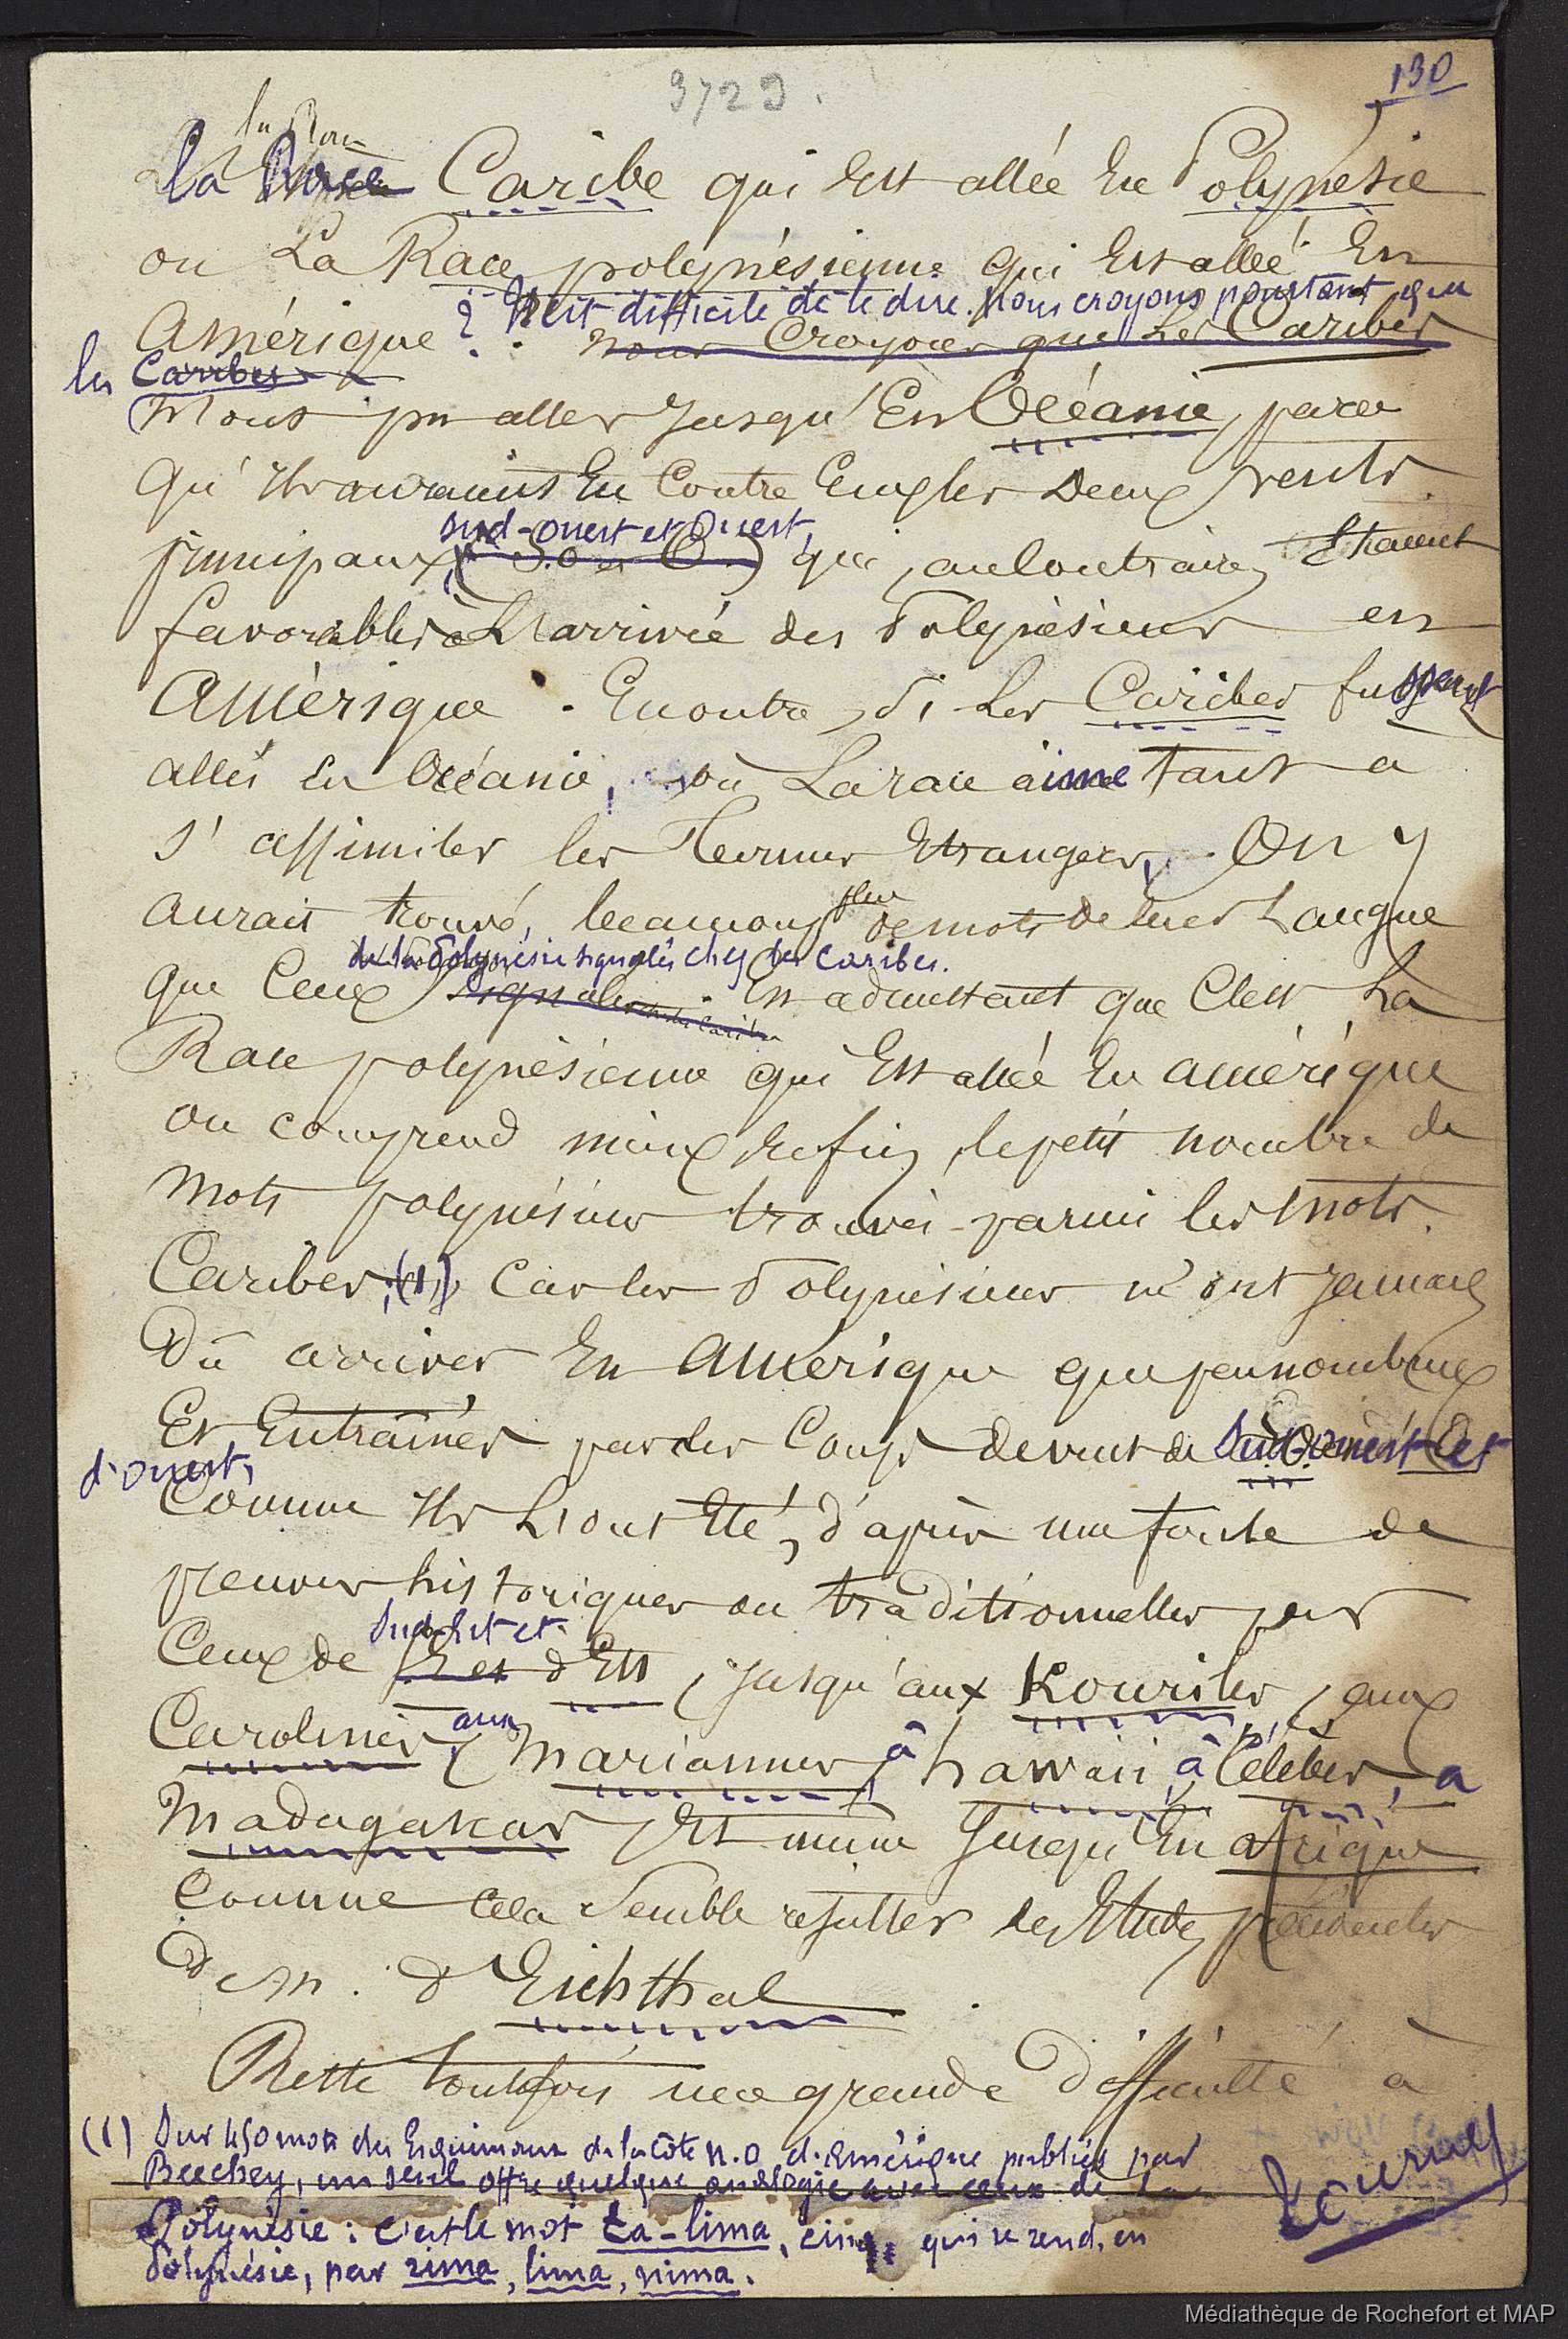 3729.
130
la Race
La Race Caribe qui est allée en Polynésie
ou La Race polynésienne qui est allée en
? Il est difficile de le dire. Nous croyons pourtant que
Amérique ? . nous croyons que les Caribes
les Caribes
n'ont pu aller jusqu'en Océanie, parce
qu'ils auraient eu contre eux les deux vents
sud-ouest et Ouest,
principaux (S.O. et O.) qui, au contraire, étaient
favorables à l'arrivée des Polynésiens en
Amérique. En outre, si les Caribes fussent
allés en Océanie, où la race aime tant à
s'assimiler les termes étrangers, on y
plus
aurait trouvé, beaucoup de mots de leur langue
de la Polynésie signalés chez les Caribes.
que ceux signalés chez les Caribes. En admettant que c'est la
Race polynésienne qui est allée en Amérique
on comprend mieux enfin, le petit nombre de
mots polynésiens trouvés parmi les mots
Caribes; (1) car les Polynésiens n'ont jamais
dû arriver en Amérique que peu nombreux
et entraînés par des coups de vent de Sud-ouest et
d'ouest,
comme ils l'ont été, d'après une foule de
preuves historiques ou traditionnelles par
Sud-Est et
ceux de S.E et d'Est, jusqu'aux Kouriles, aux
aux
Carolines, Mariannes, à hawaii, à Célèbes, à
Madagascar, et même jusqu'en afrique
comme cela semble résulter des Etudes
de M. d'Eichthal.
Reste toutefois une grande difficulté à
(1) Sur 450 mots des Esquimaux de la côte N.O d'Amérique publiés par
Beechey, un seul offre quelque analogie avec ceux de la
Polynésie : c'est le mot ta-lima, cinq, qui se rend, en
Polynésie, par rima, lima, nima.
Médiathèque de Rochefort et MAP